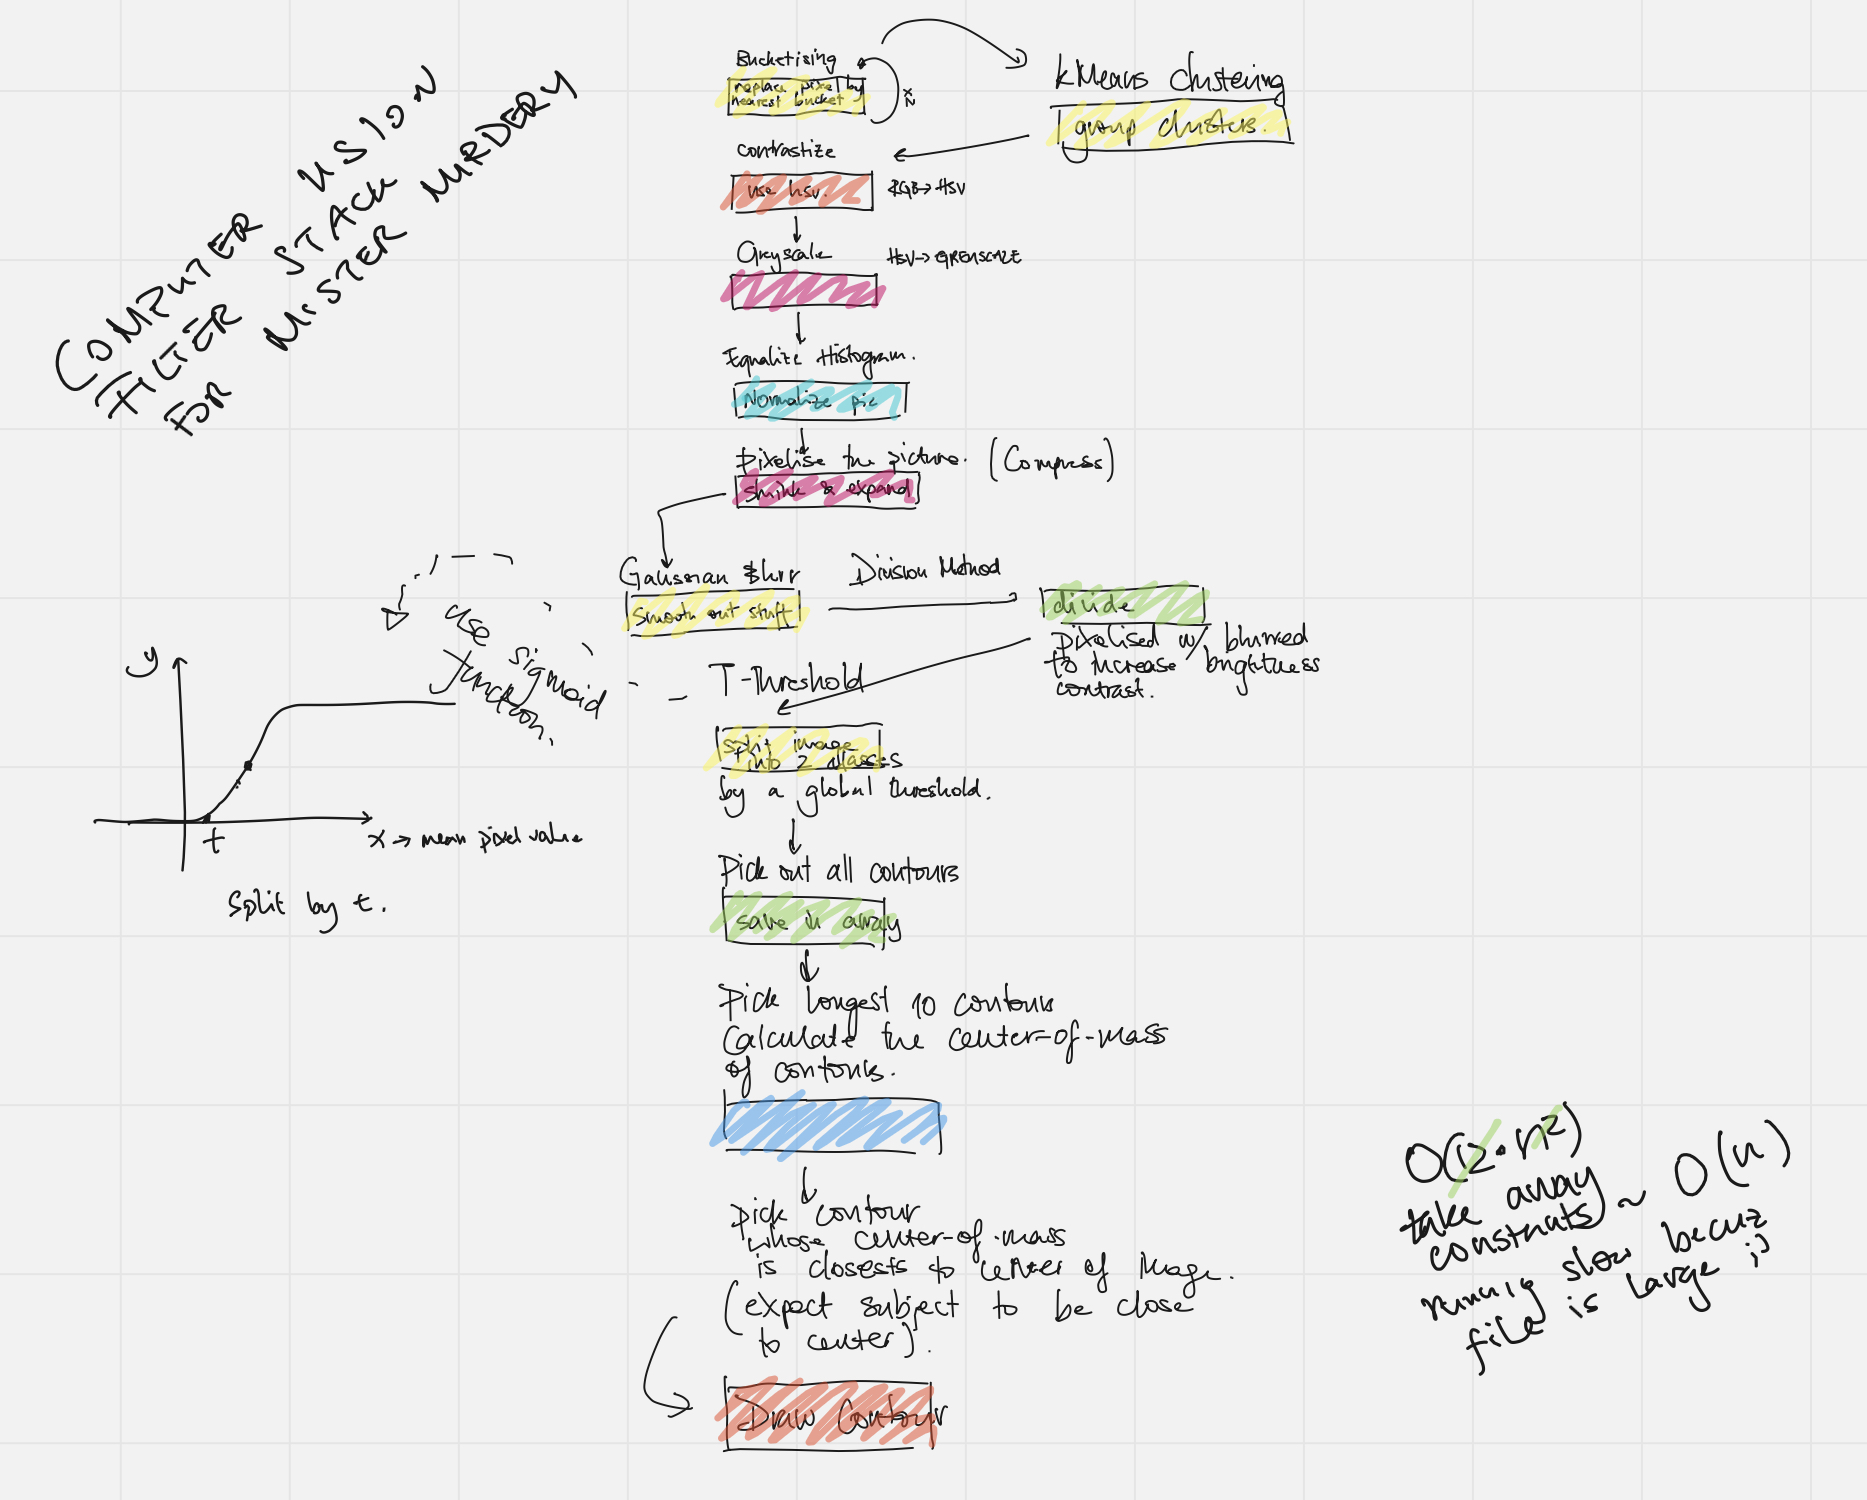 COMPUTER VISION
FILTER STACK
FOR MISTER MURDERY
Bucketising
replace pixel by
nearest bucket
x2
kMeans Clustering
group clusters.
contrastize
use hsv.
RGB → HSV
Greyscale
HSV → GREYSCALE
Equalize Histogram.
Normalize pic
Pixelise the picture. (Compress)
shrink & expand
Gaussian Blur
Smooth out stuff
Division Method
divide
pixelised w/ blurred
to increase brightness
contrast.
T-Threshold
split image
into 2 classes
by a global threshold.
use
sigmoid
function.
y
t
x → mean pixel value
Split by t.
Pick out all contours
save in array
Pick longest 10 contours
Calculate the center-of-mass
of contours.
pick contour
whose center-of-mass
is closests to center of image.
(expect subject to be close
to center).
Draw Contour
O(2·n²)
take array
constnats ~ O(n)
running slow becuz
file is large ;)